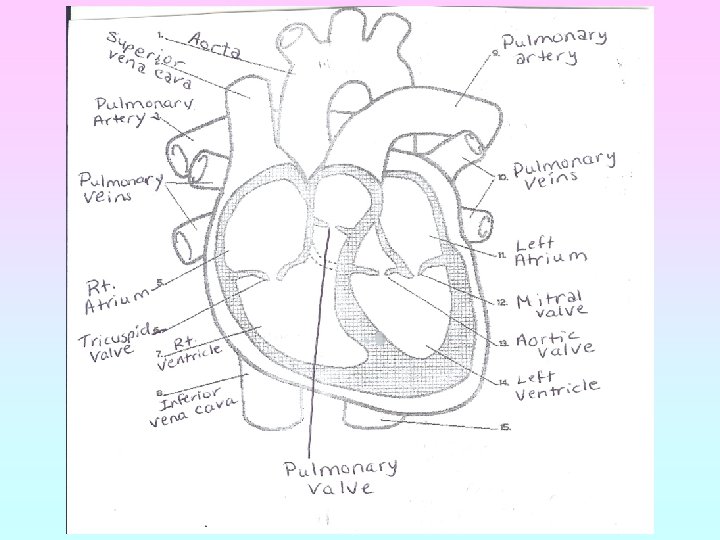 1. Aorta
Superior
vena cava
Pulmonary
Artery
Pulmonary
veins
Rt.
Atrium
Tricuspid 6.
valve
7. Rt.
ventricle
8.
Inferior
vena cava
9. Pulmonary
artery
10. Pulmonary
veins
11. Left
Atrium
12. Mitral
valve
13. Aortic
valve
14. Left
ventricle
15.
Pulmonary
valve